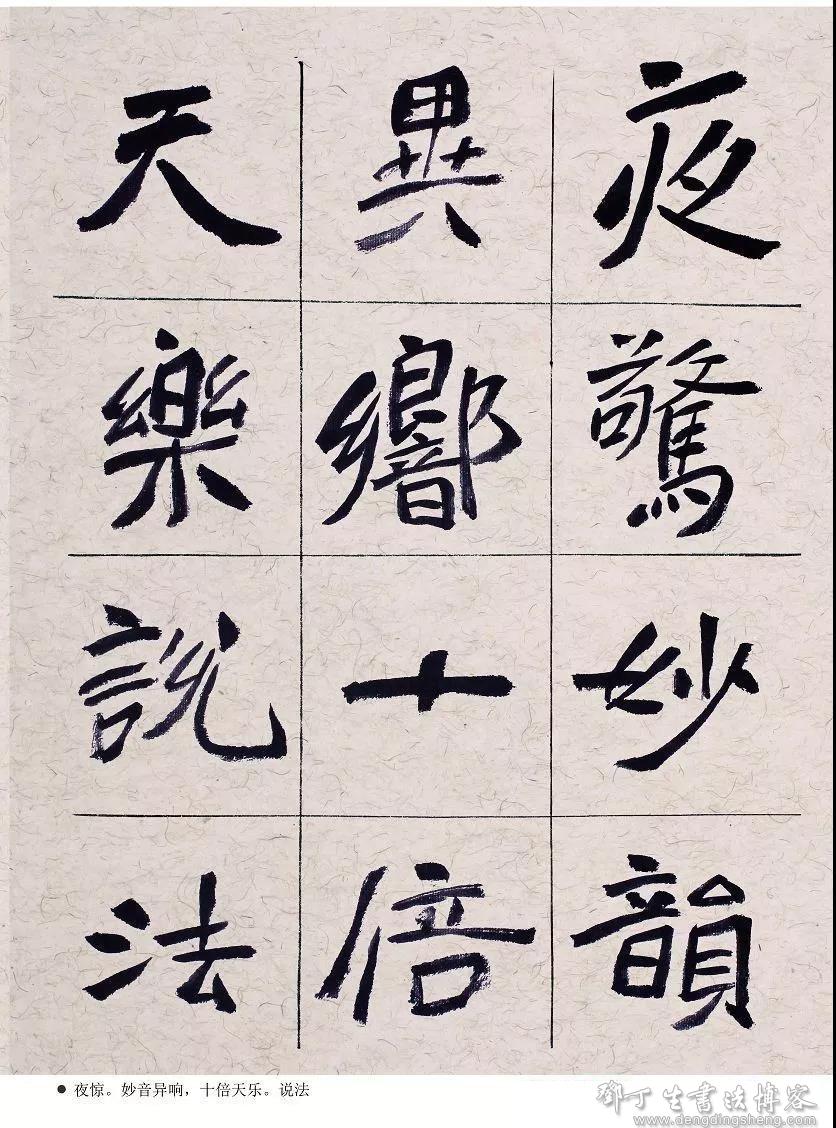 夜驚妙韻
異響十倍
天樂說法
● 夜惊。妙音异响，十倍天乐。说法
鄧丁生書法博客
www.dengdingsheng.com